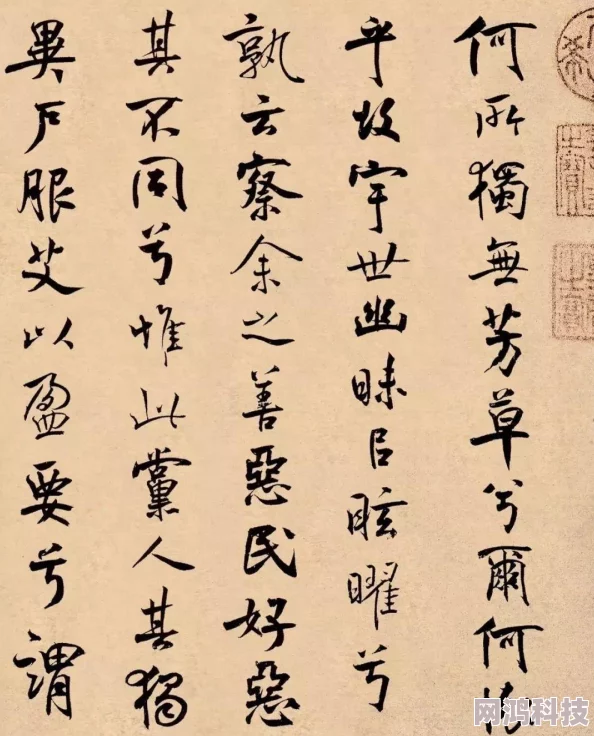 何所獨無芳草兮爾何懷
乎故宇世幽昧㠯眩曜兮
孰云察余之善惡民好惡
其不同兮惟此黨人其獨
異戶服艾以盈要兮謂
网鸿科技